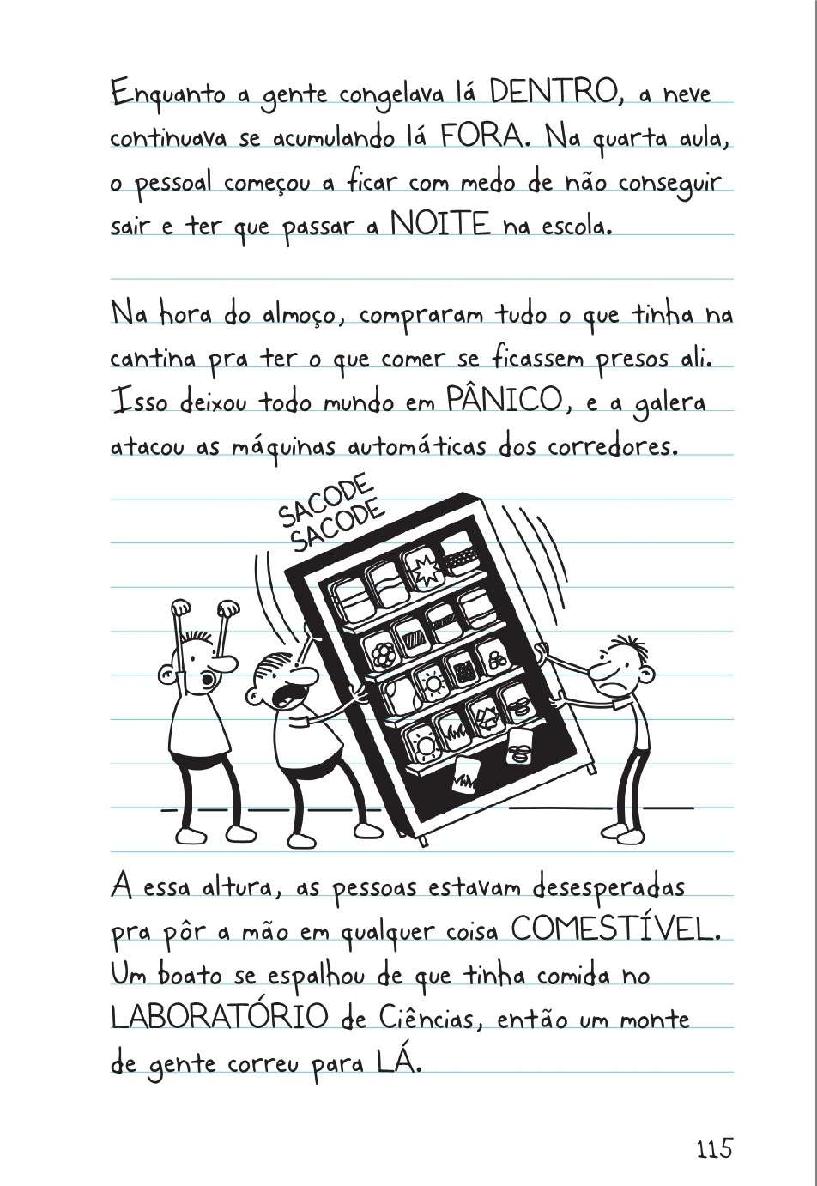 Enquanto a gente congelava lá DENTRO, a neve
continuava se acumulando lá FORA. Na quarta aula,
o pessoal começou a ficar com medo de não conseguir
sair e ter que passar a NOITE na escola.
Na hora do almoço, compraram tudo o que tinha na
cantina pra ter o que comer se ficassem presos ali.
Isso deixou todo mundo em PÂNICO, e a galera
atacou as máquinas automáticas dos corredores.
SACODE
SACODE
A essa altura, as pessoas estavam desesperadas
pra pôr a mão em qualquer coisa COMESTÍVEL.
Um boato se espalhou de que tinha comida no
LABORATÓRIO de Ciências, então um monte
de gente correu para LÁ.
115